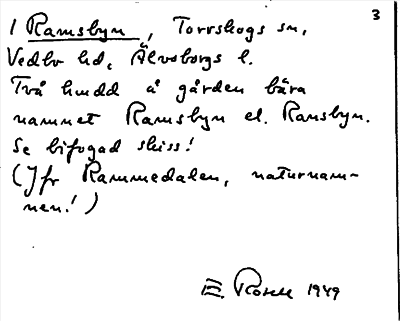 3
1 Ramsbyn, Torrskogs sn,
Vedbo hd, Älvsborgs l.
Två hmdd å gården bära
namnet Ramsbyn el. Ransbyn.
Se bifogad skiss!
(Jfr Rammedalen, naturnam-
nen!)
E. Rosell 1949